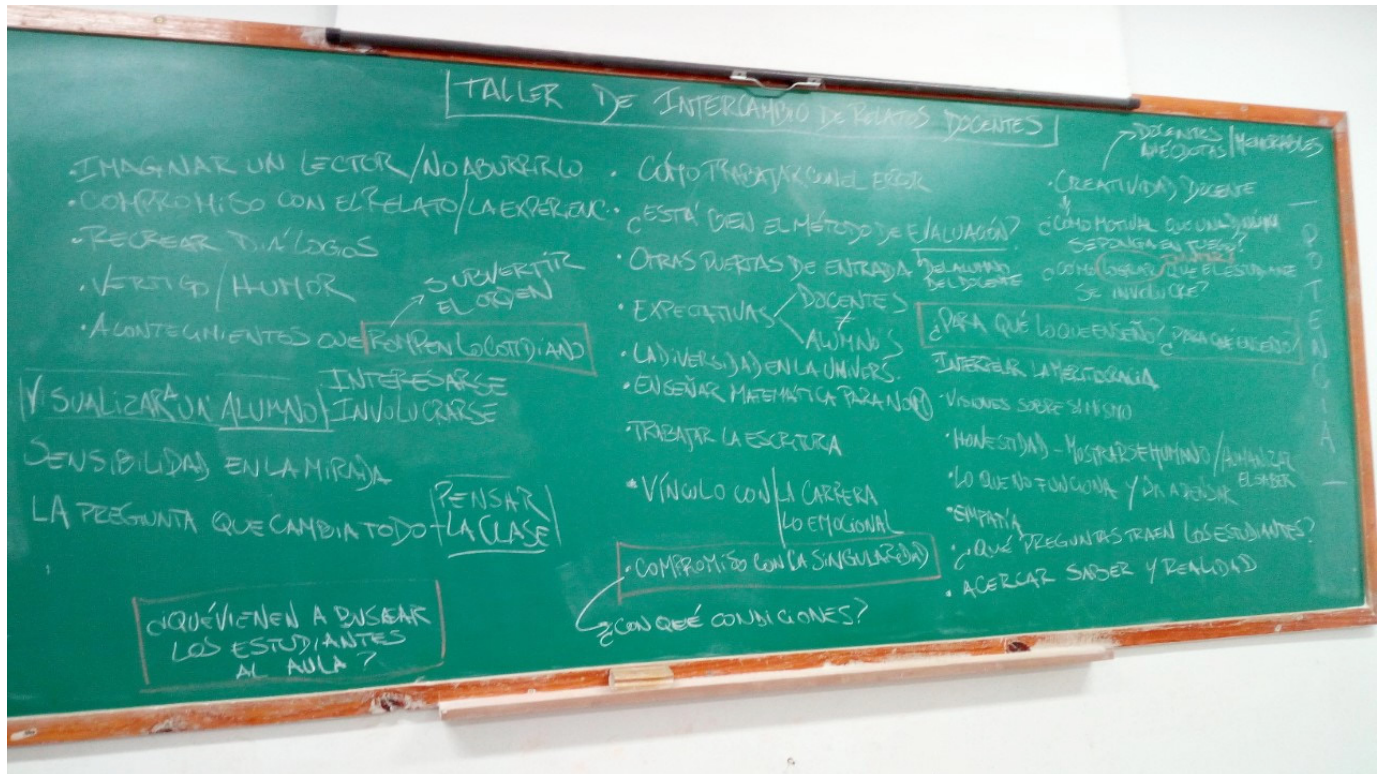 TALLER DE INTERCAMBIO DE RELATOS DOCENTES
·IMAGINAR UN LECTOR/NO ABURRIRLO
·COMPROMISO CON EL RELATO/LA EXPERIENC.
·RECREAR DIÁLOGOS
·VERTIGO/HUMOR
SUBVERTIR
EL ORDEN
·ACONTECIMIENTOS QUE ROMPEN LO COTIDIANO
VISUALIZAR A UN ALUMNO
INTERESARSE
INVOLUCRARSE
SENSIBILIDAD EN LA MIRADA
LA PREGUNTA QUE CAMBIA TODO
PENSAR
LA CLASE
¿QUÉ VIENEN A BUSCAR
LOS ESTUDIANTES
AL AULA?
· CÓMO TRABAJAR CON EL ERROR
· ¿ESTÁ BIEN EL MÉTODO DE EVALUACIÓN?
· OTRAS PUERTAS DE ENTRADA
DEL ALUMNO
DEL DOCENTE
· EXPECTATIVAS
DOCENTES
≠
ALUMNOS
· LA DIVERSIDAD EN LA UNIVERS.
· ENSEÑAR MATEMÁTICA PARA NO M
·TRABAJAR LA ESCRITURA
·VÍNCULO CON
LA CARRERA
LO EMOCIONAL
·COMPROMISO CON LA SINGULARIDAD
¿CON QUÉ CONDICIONES?
DOCENTES
ANÉCDOTAS/MEMORABLES
·CREATIVIDAD DOCENTE
¿CÓMO MOTIVAR QUE UNA
SE PONGA EN JUEGO?
¿CÓMO LOGRAR QUE EL ESTUDIANTE
SE INVOLUCRE?
¿PARA QUÉ LO QUE ENSEÑO? ¿PARA QUÉ ENSEÑO?
LA MERITOCRACIA
·VISIONES SOBRE SÍ MISMO
·HONESTIDAD - MOSTRARSE HUMANO/HUMANIZAR
EL SABER
·LO QUE NO FUNCIONA Y DA A PENSAR
·EMPATÍA
·¿QUÉ PREGUNTAS TRAEN LOS ESTUDIANTES?
· ACERCAR SABER Y REALIDAD
-POTENCIA-